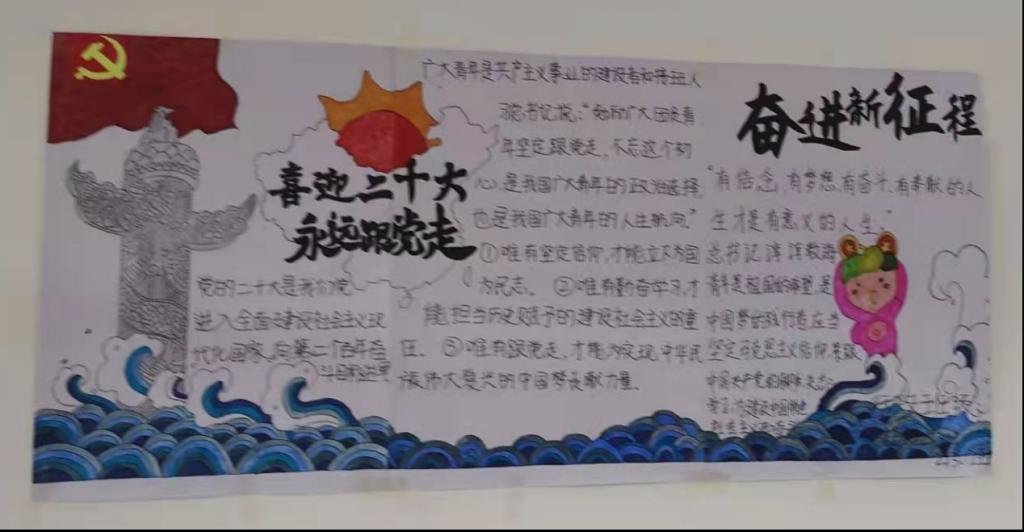 喜迎二十大
永远跟党走
党的二十大是我们党
进入全面建设社会主义现
代化国家、向第二个百年奋
斗目标进军
广大青年是共产主义事业的建设者和接班人
总书记说:“勉励广大团员青
年坚定跟党走,不忘这个初
心,是我国广大青年的政治选择,
也是我国广大青年的人生航向。”
①唯有坚定信仰,才能立不为国
为民志。②唯有勤奋学习,才
能担当历史赋予的建设社会主义的重
任。③唯有跟党走,才能为实现中华民
族伟大复兴的中国梦贡献力量。
奋进新征程
“有信念,有梦想,有奋斗,有奉献的人
生才是有意义的人生。”
总书记谆谆教诲
青年是祖国的希望,是
中国梦的践行者,应当
坚定马克思主义信仰,
中国共产党的
学习,为建设中国特色